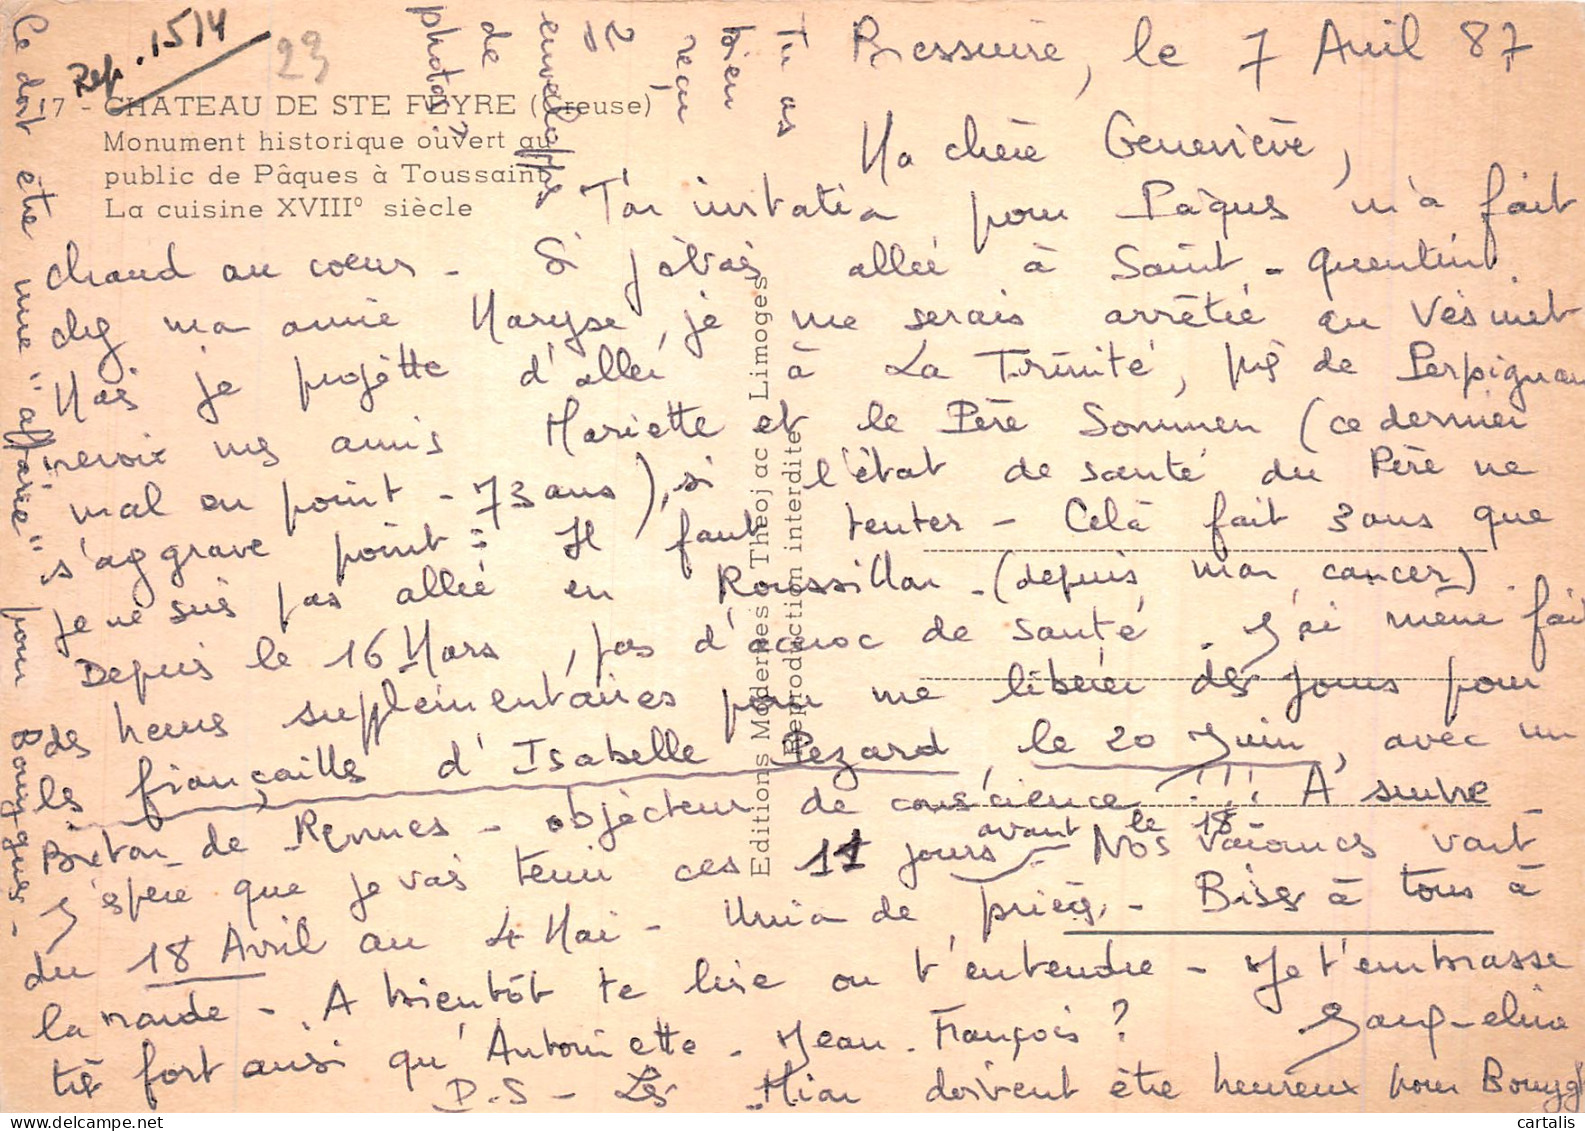 Rep. 15/4
23
17 - CHATEAU DE STE FEYRE (Creuse)
Monument historique ouvert au
public de Pâques à Toussaint
La cuisine XVIII° siècle
Editions Modernes Théojac Limoges
Reproduction interdite
Bressuire, le 7 Avril 87
Ma chère Geneviève,
Ton invitation pour Pâques m'a fait
chaud au coeur - Si j'étais allée à Saint-Quentin
chez ma amie Maryse, je me serais arrêtée au Vésinet
Mais je projette d'aller à La Trinité, près de Perpignan
revoir mes amis Mariette et le Père Sommen (ce dernier
mal en point - 73 ans), si l'état de santé du Père ne
s'aggrave point : Il faut tenter - Celà fait 3 ans que
je ne suis pas allée en Roussillon (depuis mon cancer).
Depuis le 16 Mars, pas d'accroc de santé. J'ai même fait
des heures supplémentaires pour me libérer des jours pour
les fiançailles d'Isabelle Pezard, le 20 Juin, avec un
Breton de Rennes - objecteur de conscience !!! A suivre -
J'espère que je vais tenir ces 11 jours avant le 18 - Nos vacances vont
du 18 Avril au 4 Mai - Union de prières - Bises à tous à
la ronde - A bientôt te lire ou t'entendre - Je t'embrasse
très fort ainsi qu'Antoinette - Jean-François ? Jacq-eline
P.S - Les Mian doivent être heureux pour Bouyg
Ce doit être une "affaire" pour Bouygues -
Tu as
bien
reçu
12
enveloppes
de
photos